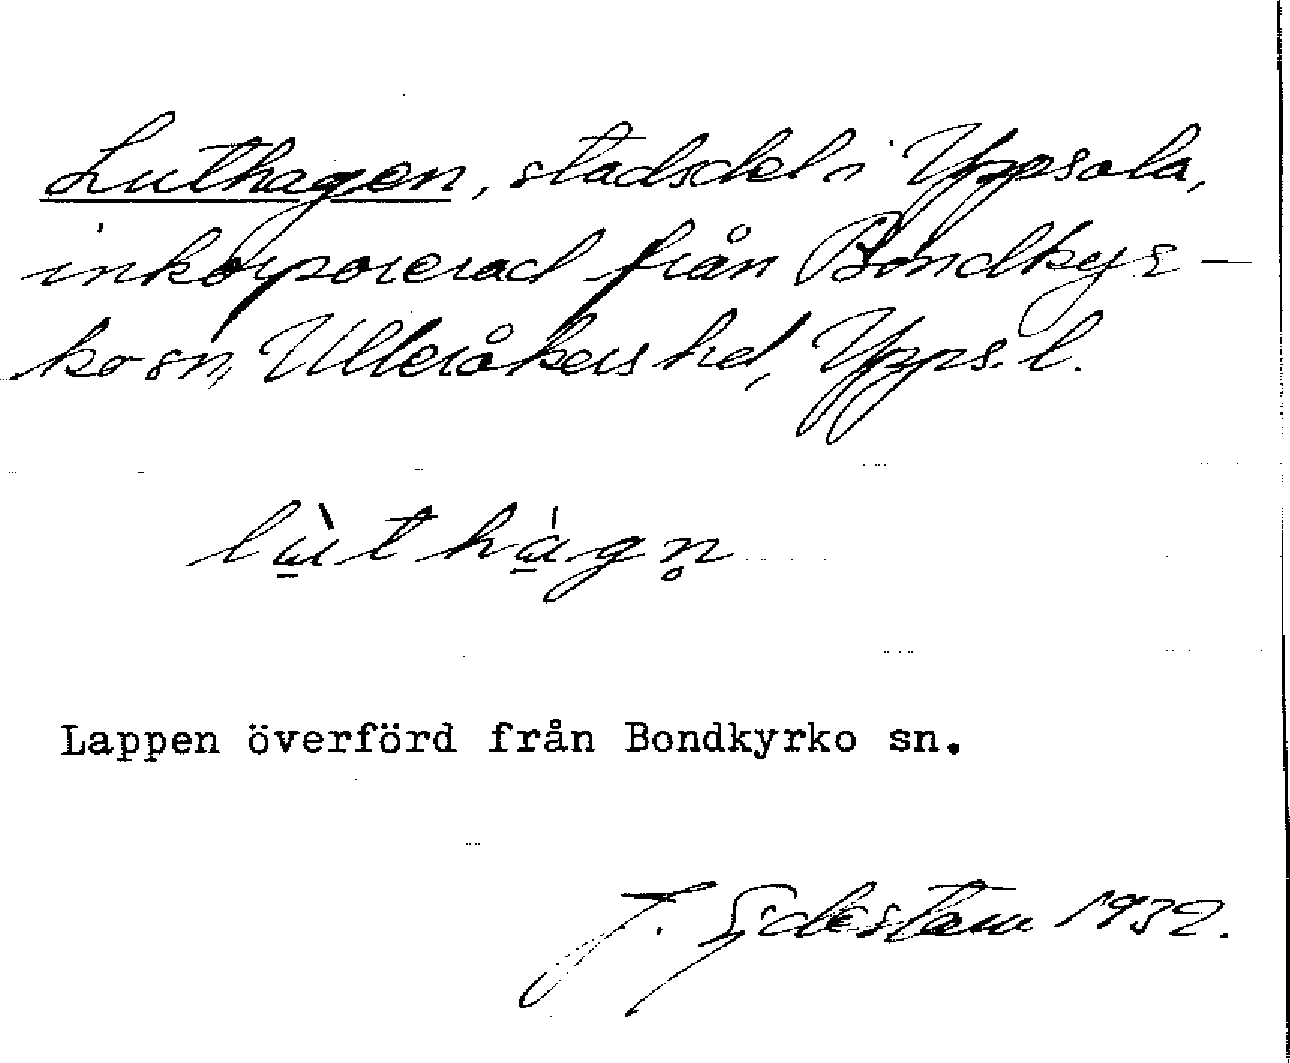 Luthagen, stadsdel i Uppsala,
inkorporerad från Bondkyr-
ko sn, Ulleråkers hd, Upps. l.
lùt hàgn̥
Lappen överförd från Bondkyrko sn.
1932.